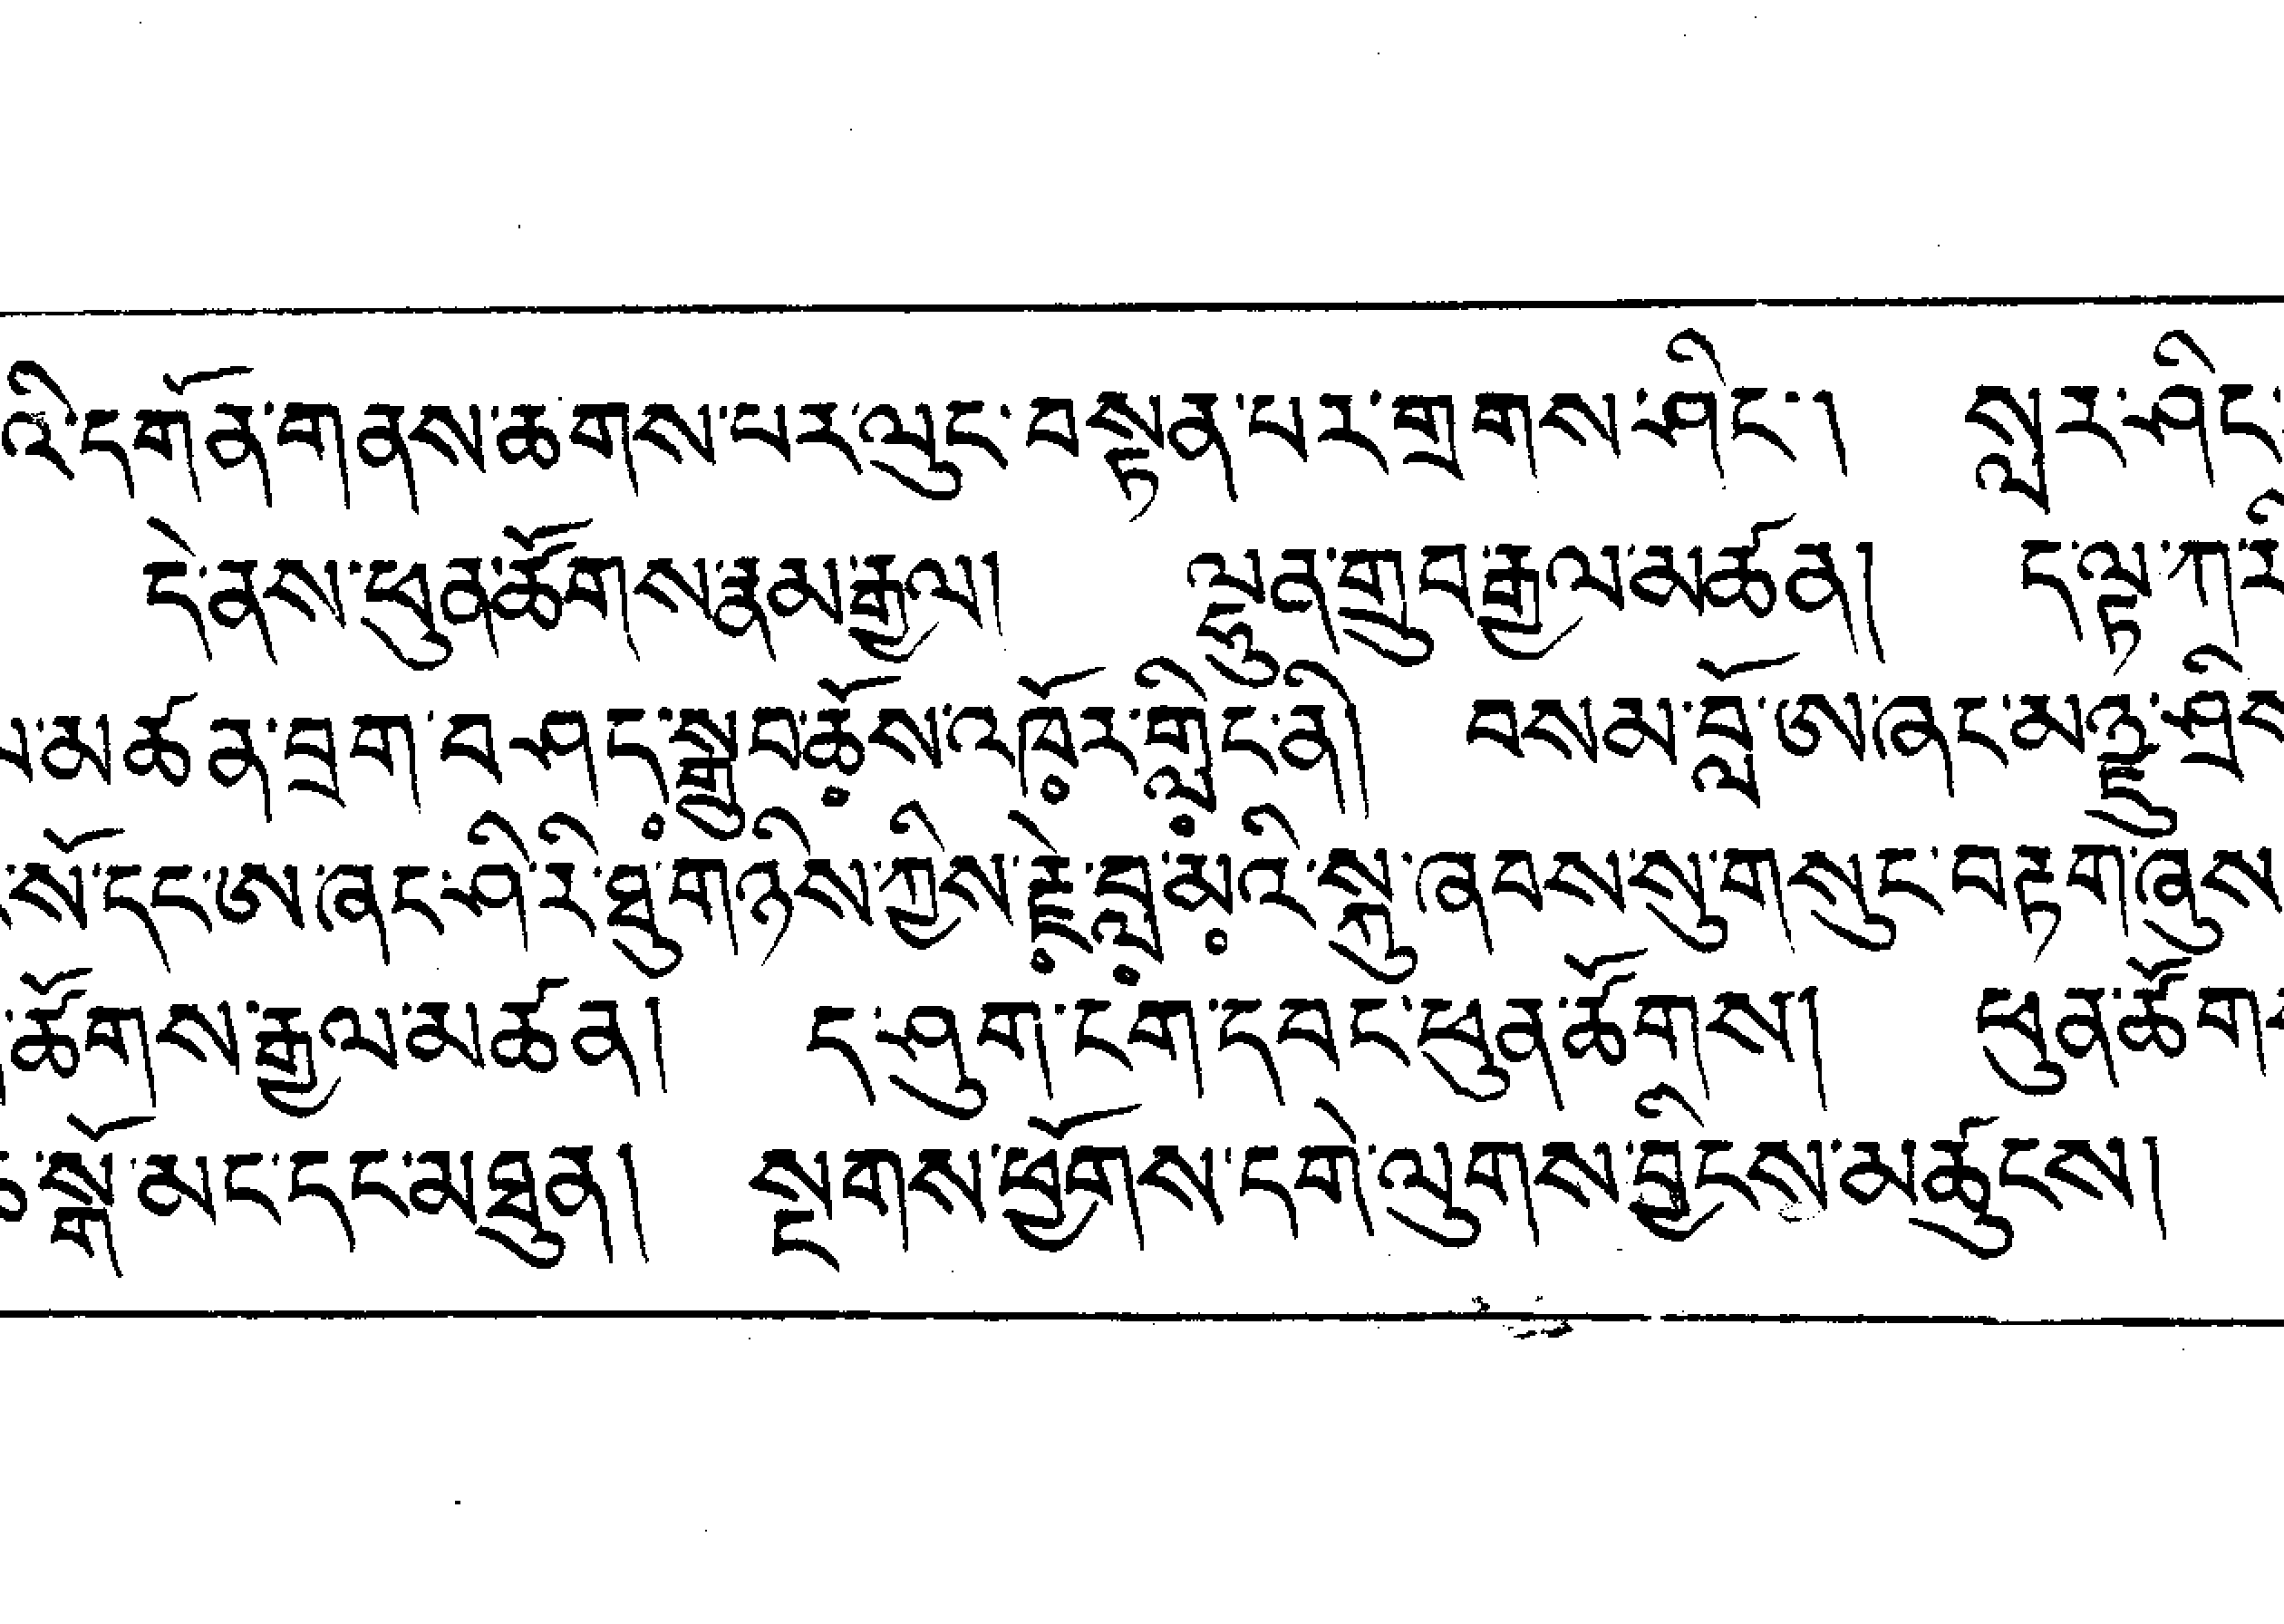 འི་དགོན་གནས་ཆགས་པར་ལུང་བསྟན་པར་གྲགས་ཤིང་། སླར་ཤིང་
དེ་ནས་ཕུན་ཚོགས་རྣམ་རྒྱལ། ལྷུན་གྲུབ་རྒྱལ་མཚན། ད་ལྟ་ཀརི
མཚན་བྲག་བཤད་སྒྲུབ་ཆོས་འཁོར་གླིང་ནི། བསམ་བློ་ཨ་ཞང་མཉྫུ་ཤྲིས
སོ་དང་ཨ་ཞང་ཤི་རི་ཐུག་ཉིས་ཀྱིས་རྗེ་བླ་མའི་སྐུ་ཞབས་སུ་གསུང་བརྟག་ཞུས
ཚོགས་རྒྱལ་མཚན། ད་ཤུག་ངག་དབང་ཕུན་ཚོགས། ཕུན་ཚོགས
སྒོ་མང་དང་མཐུན། སྔགས་ཕྱོགས་དགེ་ལུགས་བྱིངས་མཚུངས།